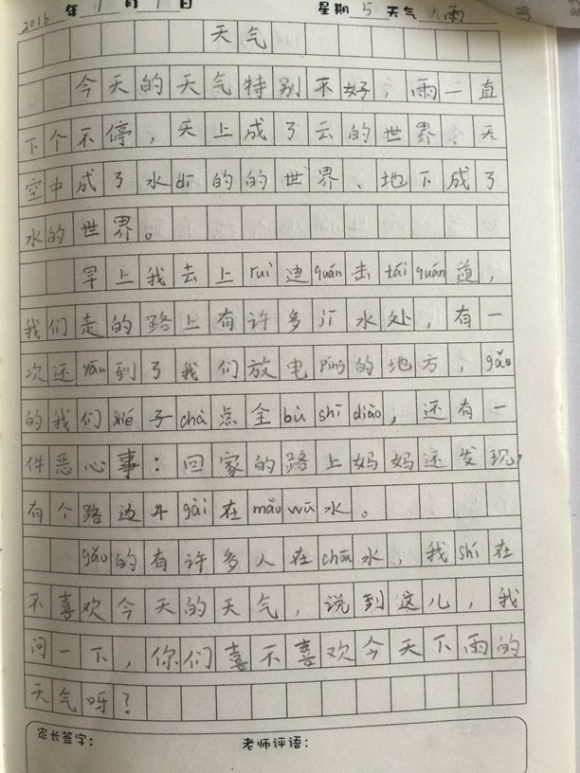 2016 年 1 月 1 日 星期 5 天气 大雨
天气
今天的天气特别不好，雨一直
下个不停，天上成了云的世界、天
空中成了水dī的的世界、地下成了
水的世界。
早上我去上ruì迪quán击tái quán道，
我们走的路上有许多jī水处，有一
次还yān到了我们放电píng的地方，gǎo
的我们xié子chà点全bù shī diào，还有一
件恶心事：回家的路上妈妈还发现，
有个路边井gài在mào wū水。
gǎo的有许多人在chōu水，我shí在
不喜欢今天的天气，说到这儿，我
问一下，你们喜不喜欢今天下雨的
天气呀？
家长签字： 老师评语：